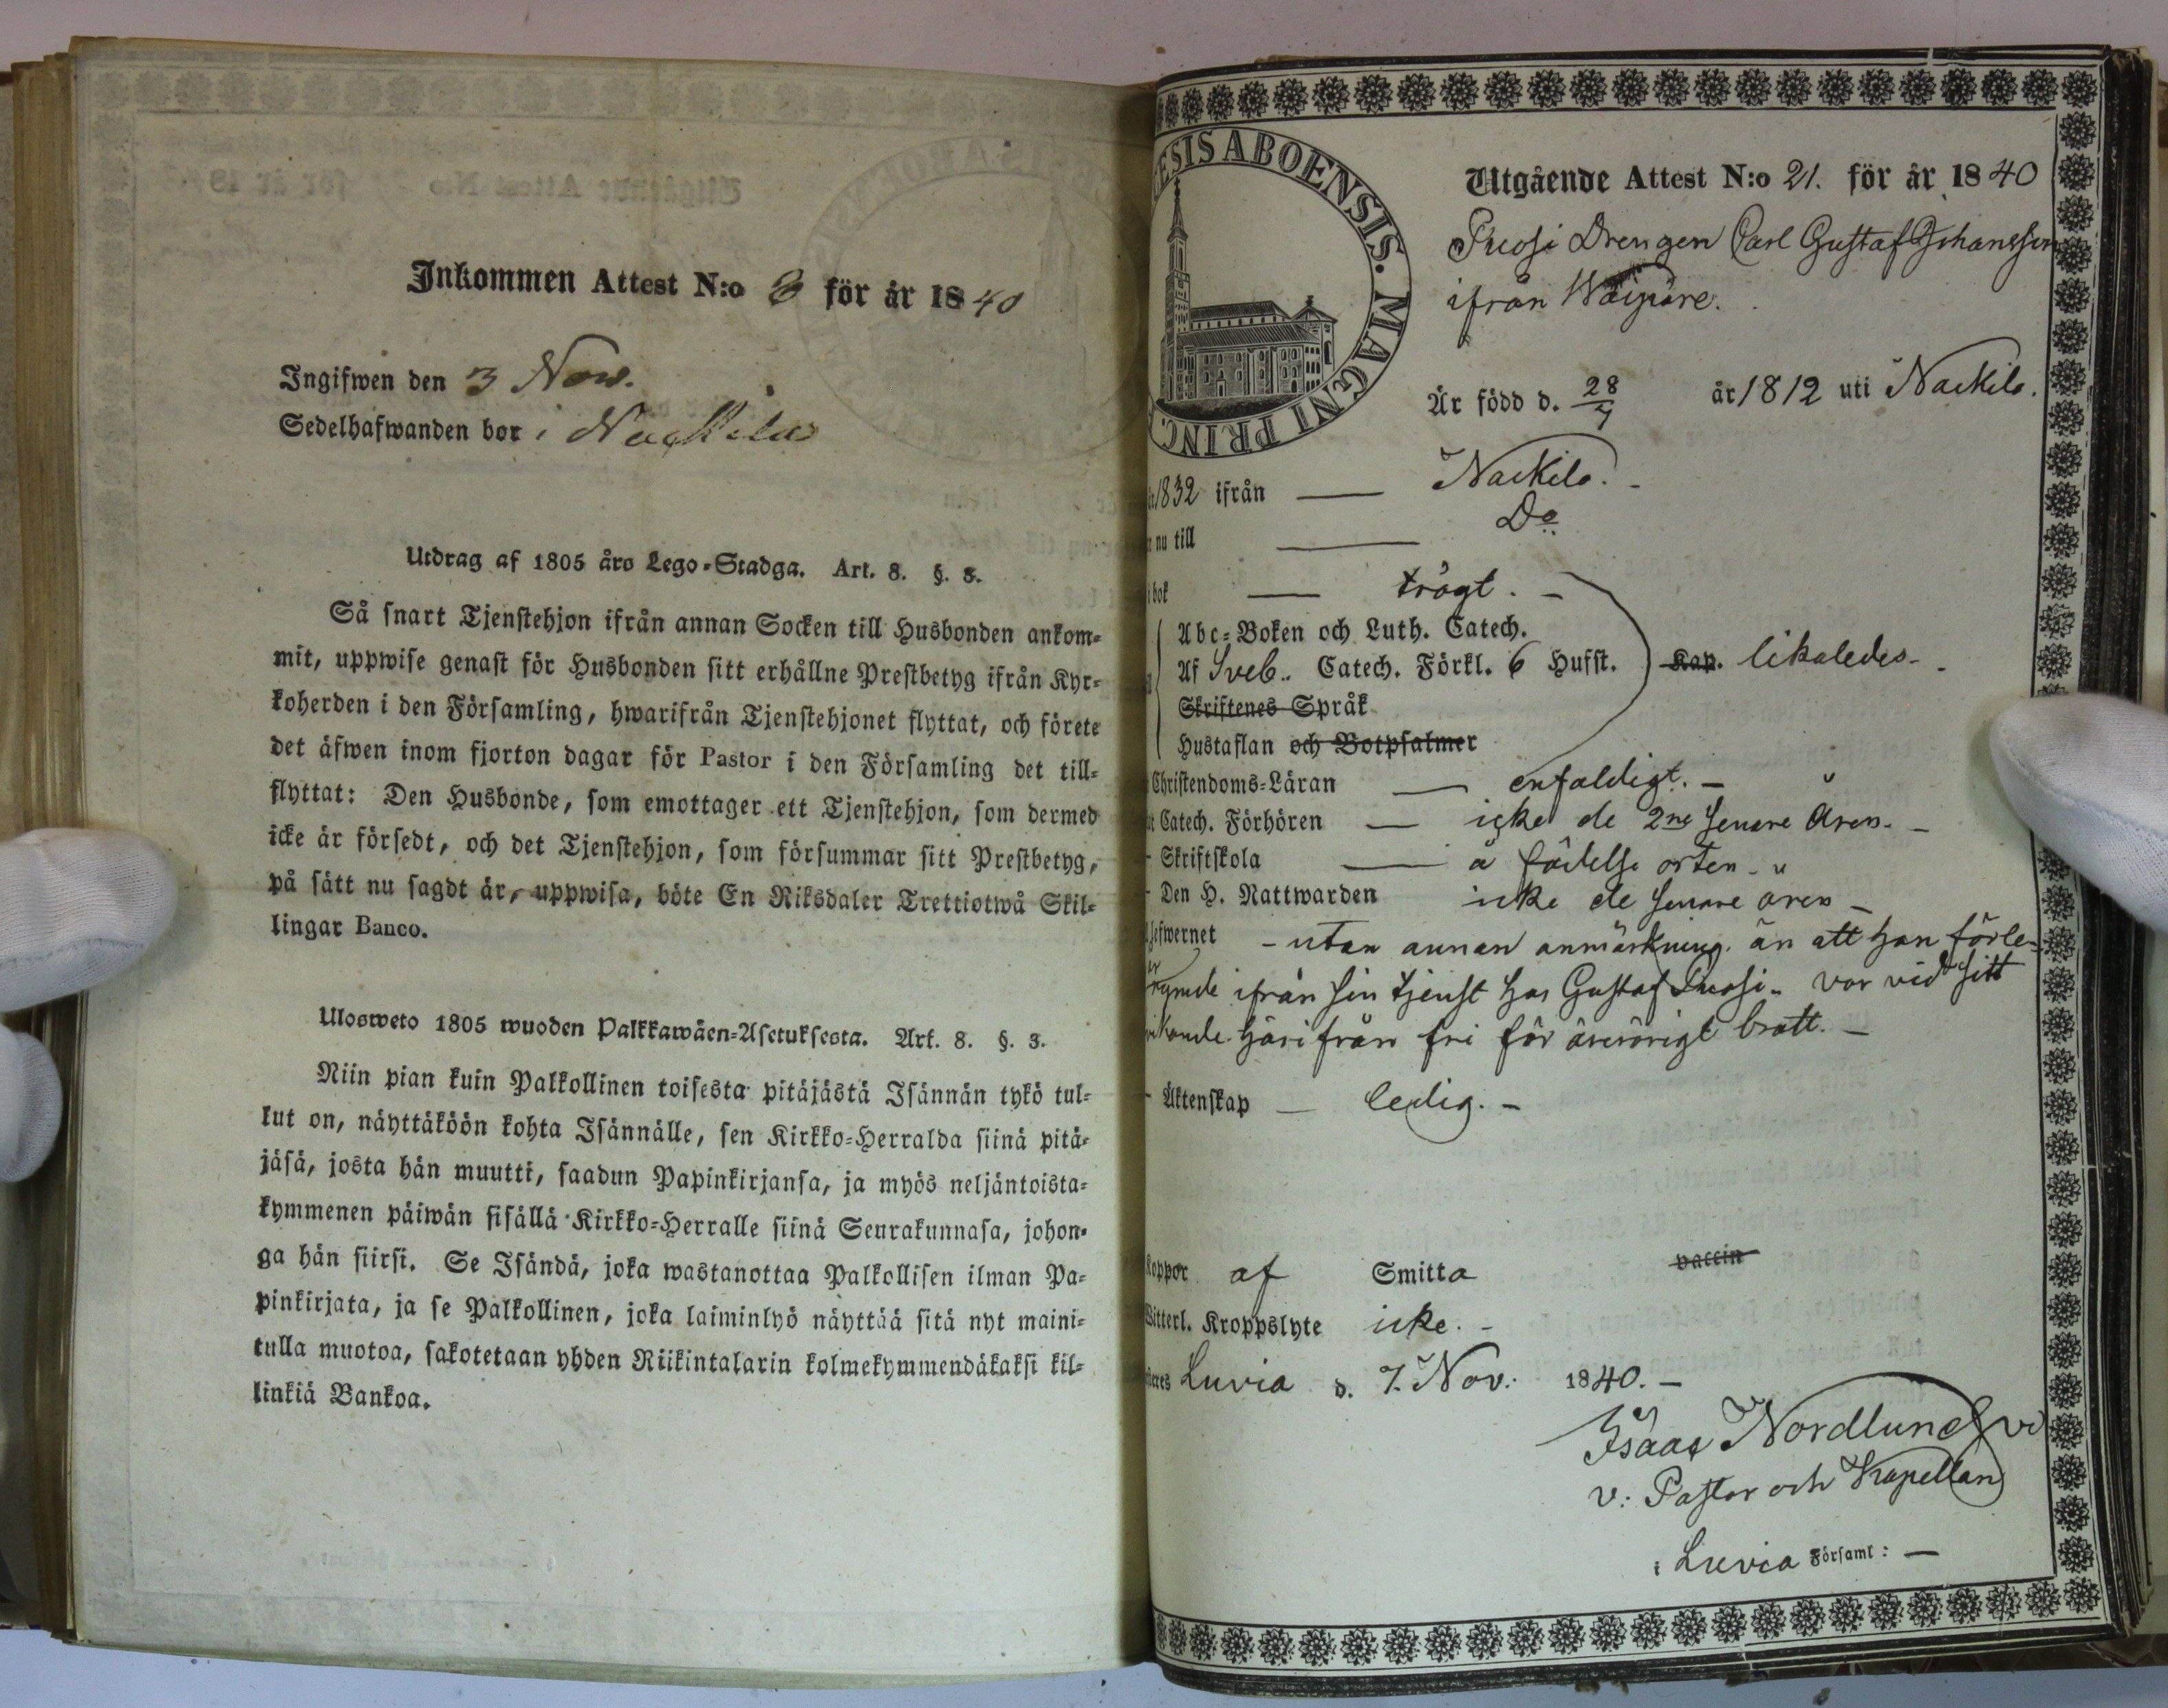 Inkommen Attest N:o 3 för år 1840
Ingifwen den 3 Nov.
Sedelhafwanden bor i Nackila
Utdrag af 1805 års Lego-Stadga. Art. 8. §. 3.
Så snart Tjenstehjon ifrån annan Socken till Husbonden ankom-
mit, uppwise genast för Husbonden sitt erhållne Prestbetyg ifrån Kyr-
koherden i den Församling, hwarifrån Tjenstehjonet flyttat, och förete
det äfwen inom fjorton dagar för Pastor i den Församling det till-
flyttat: Den Husbonde, som emottager ett Tjenstehjon, som dermed
icke är försedt, och det Tjenstehjon, som försummar sitt Prestbetyg,
på sätt nu sagdt är, uppwisa, böte En Riksdaler Trettiotwå Skil-
lingar Banco.
Ulosweto 1805 wuoden Palkkawäen-Asetuksesta. Art. 8. §. 3.
Niin pian kuin Palkollinen toisesta pitäjästä Isännän tykö tul-
lut on, näyttäköön kohta Isännälle, sen Kirkko-Herralda siinä pitä-
jäsä, josta hän muutti, saadun Papinkirjansa, ja myös neljäntoista-
kymmenen päiwän sisällä Kirkko-Herralle siinä Seurakunnasa, johon-
ga hän siirsi. Se Isändä, joka wastanottaa Palkollisen ilman Pa-
pinkirjata, ja se Palkollinen, joka laiminlyö näyttää sitä nyt maini-
tulla muotoa, sakotetaan yhden Riikintalarin kolmekymmendäkaksi kil-
linkiä Bankoa.
ESIS ABOENSIS. MAGNI PRINC.
Utgående Attest N:o 21. för år 1840
Drengen Carl Gustaf Johansson
ifrån
Är född d. 28/7 år 1812 uti Nackila.
1832 ifrån — Nackila. -
nu till — Do
i bok — trögt. -
Abc-Boken och Luth. Catech.
Af Sveb. Catech. Förkl. 6 Hufst. Kap. likaledes -
Skriftenes Språk
Hustaflan och Botpsalmer
Christendoms-Läran — enfaldigt. -
Catech. Förhören — icke de 2ne senare åren. -
Skriftskola — å födelse orten. -
Den H. Nattwarden icke de senare åren -
Lefwernet - utan annan anmärkning. än att han
ifrån sin tjenst hos Gustaf var vid sitt
härifrån fri för ärerörigt brott. -
Äktenskap — ledig. -
Koppor af Smitta vaccin
Witterl. Kroppslyte icke. -
Luvia d. 7. Nov. 1840. -
Isaac Nordlund
v. Pastor och Kapellan
i Luvia Församl: —